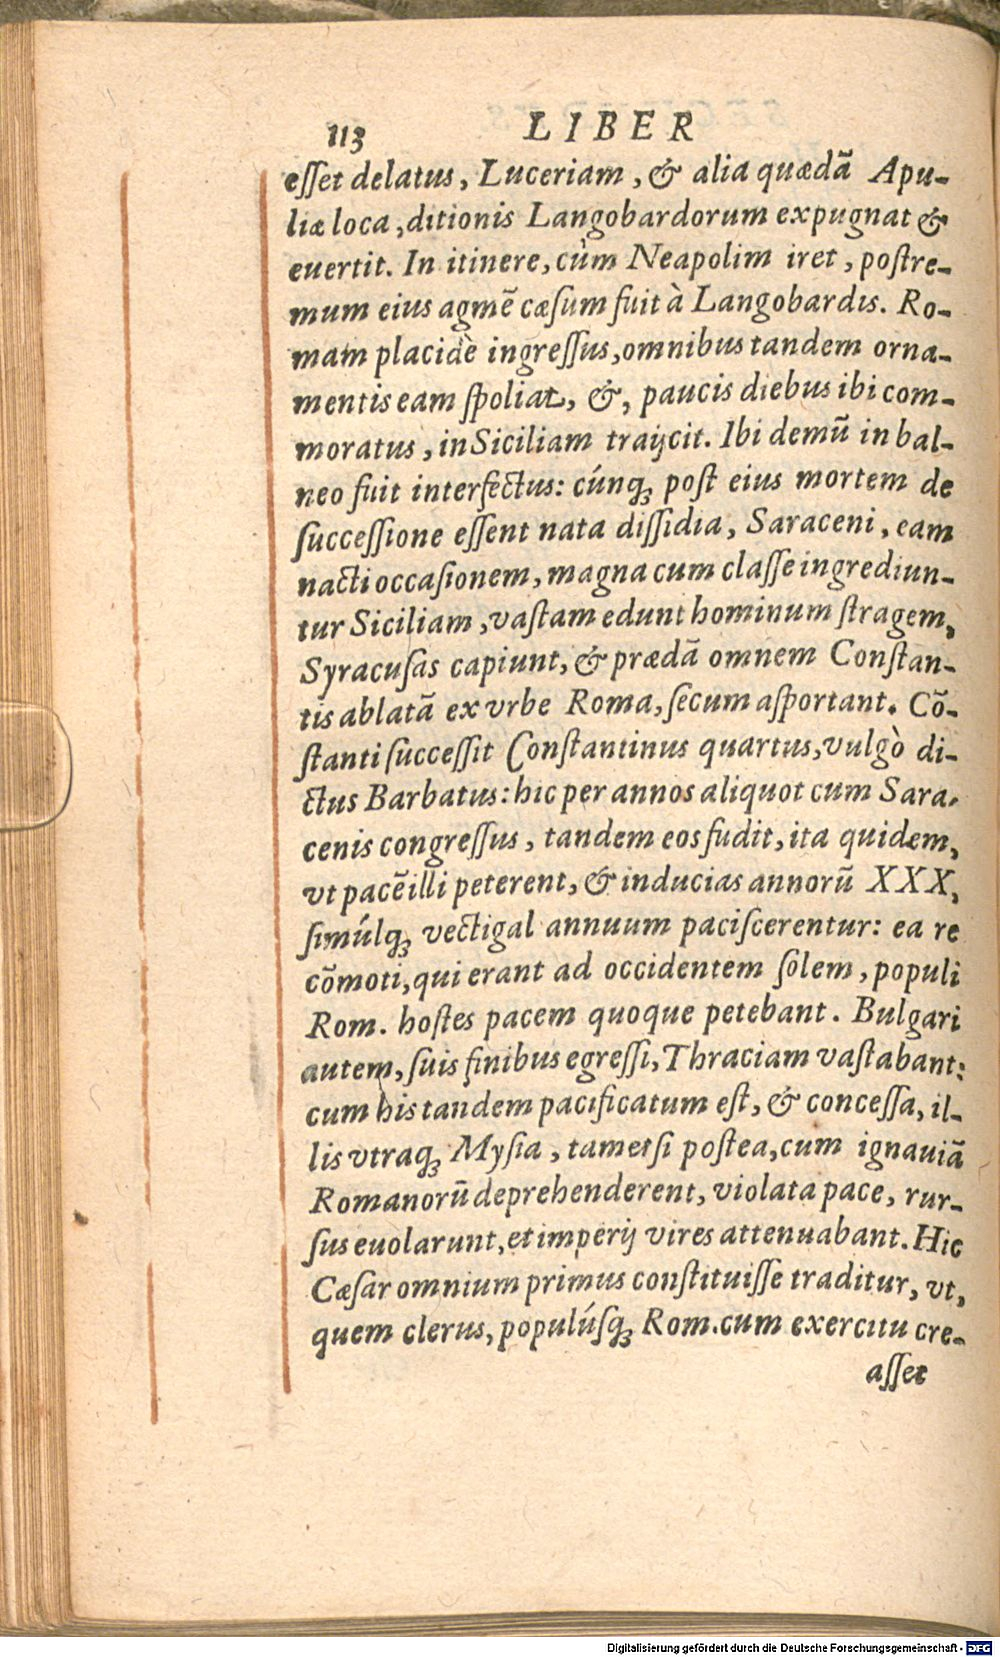 113 LIBER
eſſet delatus, Luceriam, & alia quædā Apu-
liæ loca, ditionis Langobardorum expugnat &
euertit. In itinere, cùm Neapolim iret, poſtre-
mum eius agmē cæſum fuit à Langobardis. Ro-
mam placidè ingreſſus, omnibus tandem orna-
mentis eam ſpoliat, &, paucis diebus ibi com-
moratus, in Siciliam traijcit. Ibi demū in bal-
neo fuit interfectus: cúnq; poſt eius mortem de
ſucceſſione eſſent nata diſſidia, Saraceni, eam
nacti occaſionem, magna cum claſſe ingrediun-
tur Siciliam, vaſtam edunt hominum ſtragem,
Syracuſas capiunt, & prædā omnem Conſtan-
tis ablatā ex vrbe Roma, ſecum aſportant. Cō-
ſtanti ſucceſſit Conſtantinus quartus, vulgò di-
ctus Barbatus: hic per annos aliquot cum Sara-
cenis congreſſus, tandem eos fudit, ita quidem,
vt pacē illi peterent, & inducias annorū XXX,
ſimúlq; vectigal annuum paciſcerentur: ea re
cōmoti, qui erant ad occidentem ſolem, populi
Rom. hoſtes pacem quoque petebant. Bulgari
autem, ſuis finibus egreſſi, Thraciam vaſtabant:
cum his tandem pacificatum eſt, & conceſſa, il-
lis vtraq; Myſia, tametſi poſtea, cum ignauiā
Romanorū deprehenderent, violata pace, rur-
ſus euolarunt, et imperij vires attenuabant. Hic
Cæſar omnium primus conſtituiſſe traditur, vt,
quem clerus, populúſq; Rom. cum exercitu cre-
aſſet
Digitalisierung gefördert durch die Deutsche Forschungsgemeinschaft - DFG